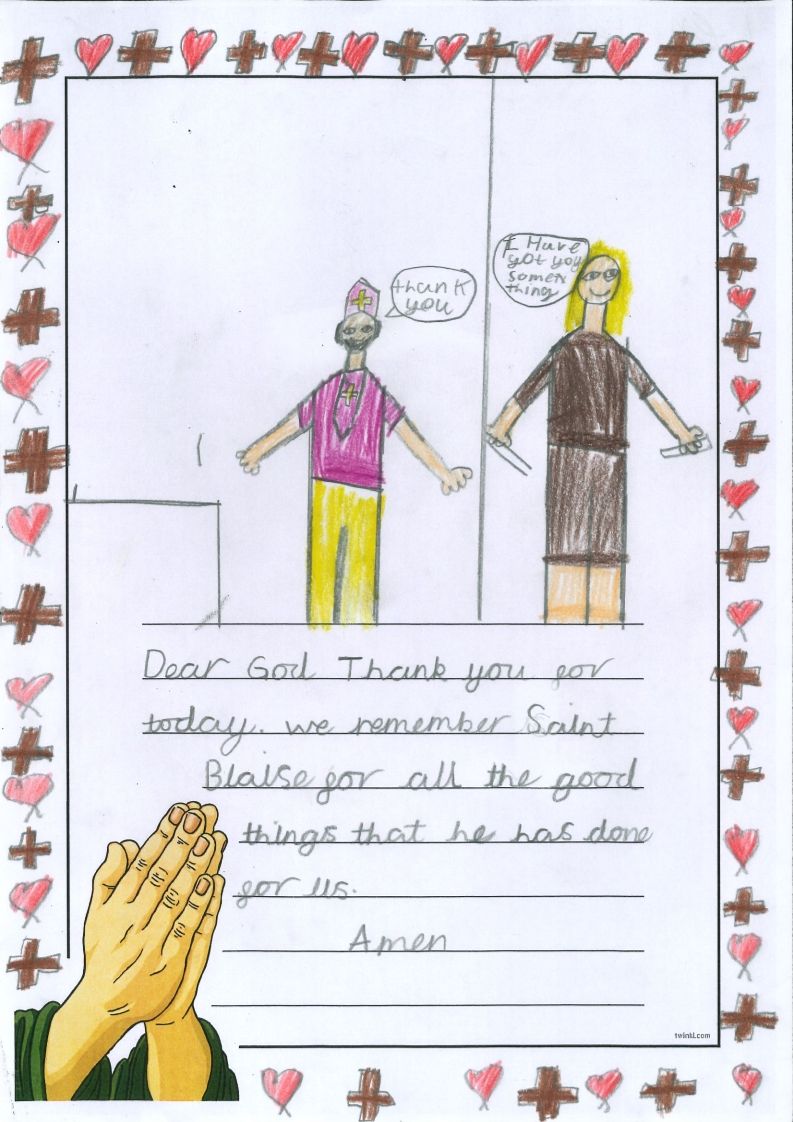 thank
you
I Have
got you
somen
thing
Dear God Thank you for
today. we remember Saint
Blaise for all the good
things that he has done
for us.
Amen
twinkl.com